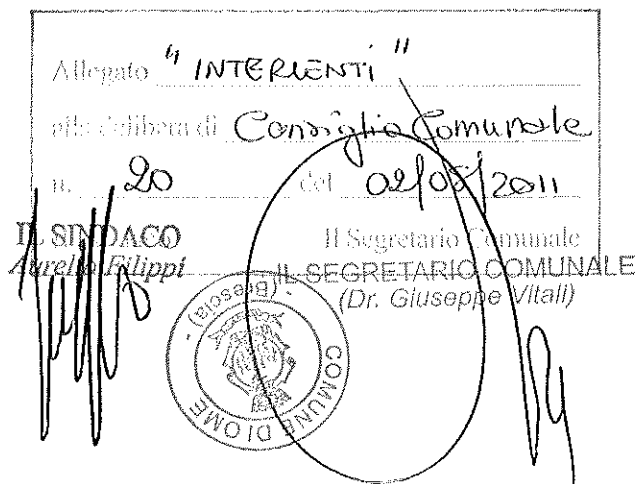 Allegato " INTERVENTI "
alla delibera di Consiglio Comunale
n. 20 del 02/05/2011
IL SINDACO
Aurelio Filippi
Il Segretario Comunale
IL SEGRETARIO COMUNALE
(Dr. Giuseppe Vitali)
COMUNE DI OME - (Brescia) -